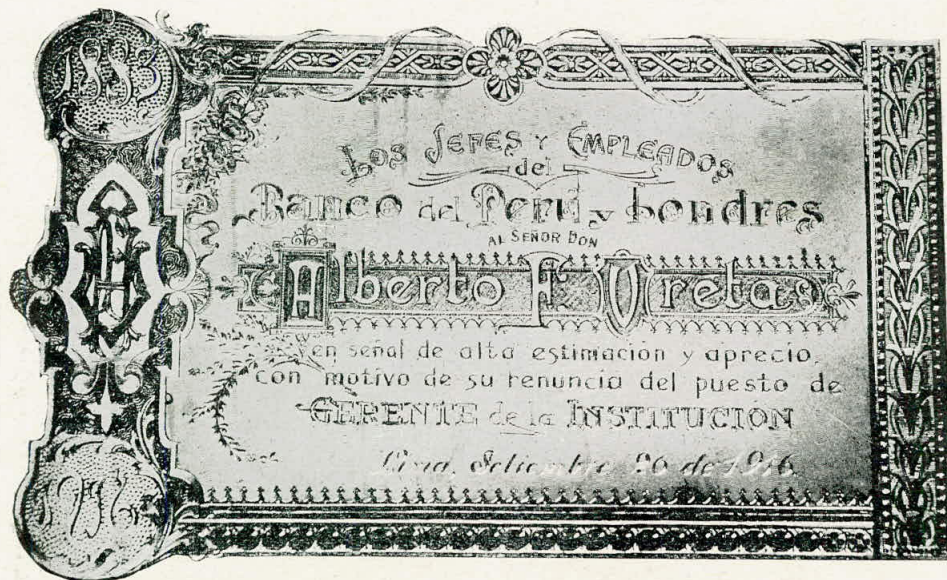 1883
Los Jefes y Empleados
del
Banco del Perú y Londres
AL SEÑOR DON
Alberto F Ureta
en señal de alta estimación y aprecio,
con motivo de su renuncia del puesto de
GERENTE de la INSTITUCION
Lima, Setiembre de